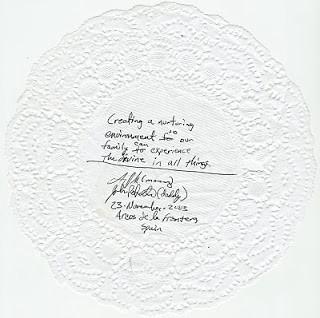 Creating a nurturing
environment so our
family can experience
the divine in all things.
(mommy)
(daddy)
23. November. 2003
Arcos de la Frontera
Spain